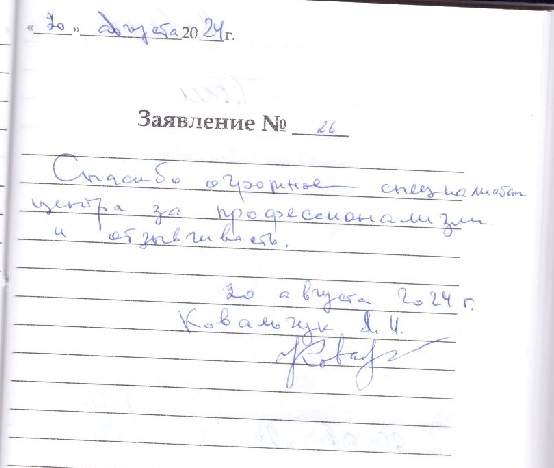 «20» августа 2024 г.
Заявление № 26
Спасибо огромное специалистам
центра за профессионализм
и отзывчивость.
20 августа 2024 г.
Ковальчук Л. И.